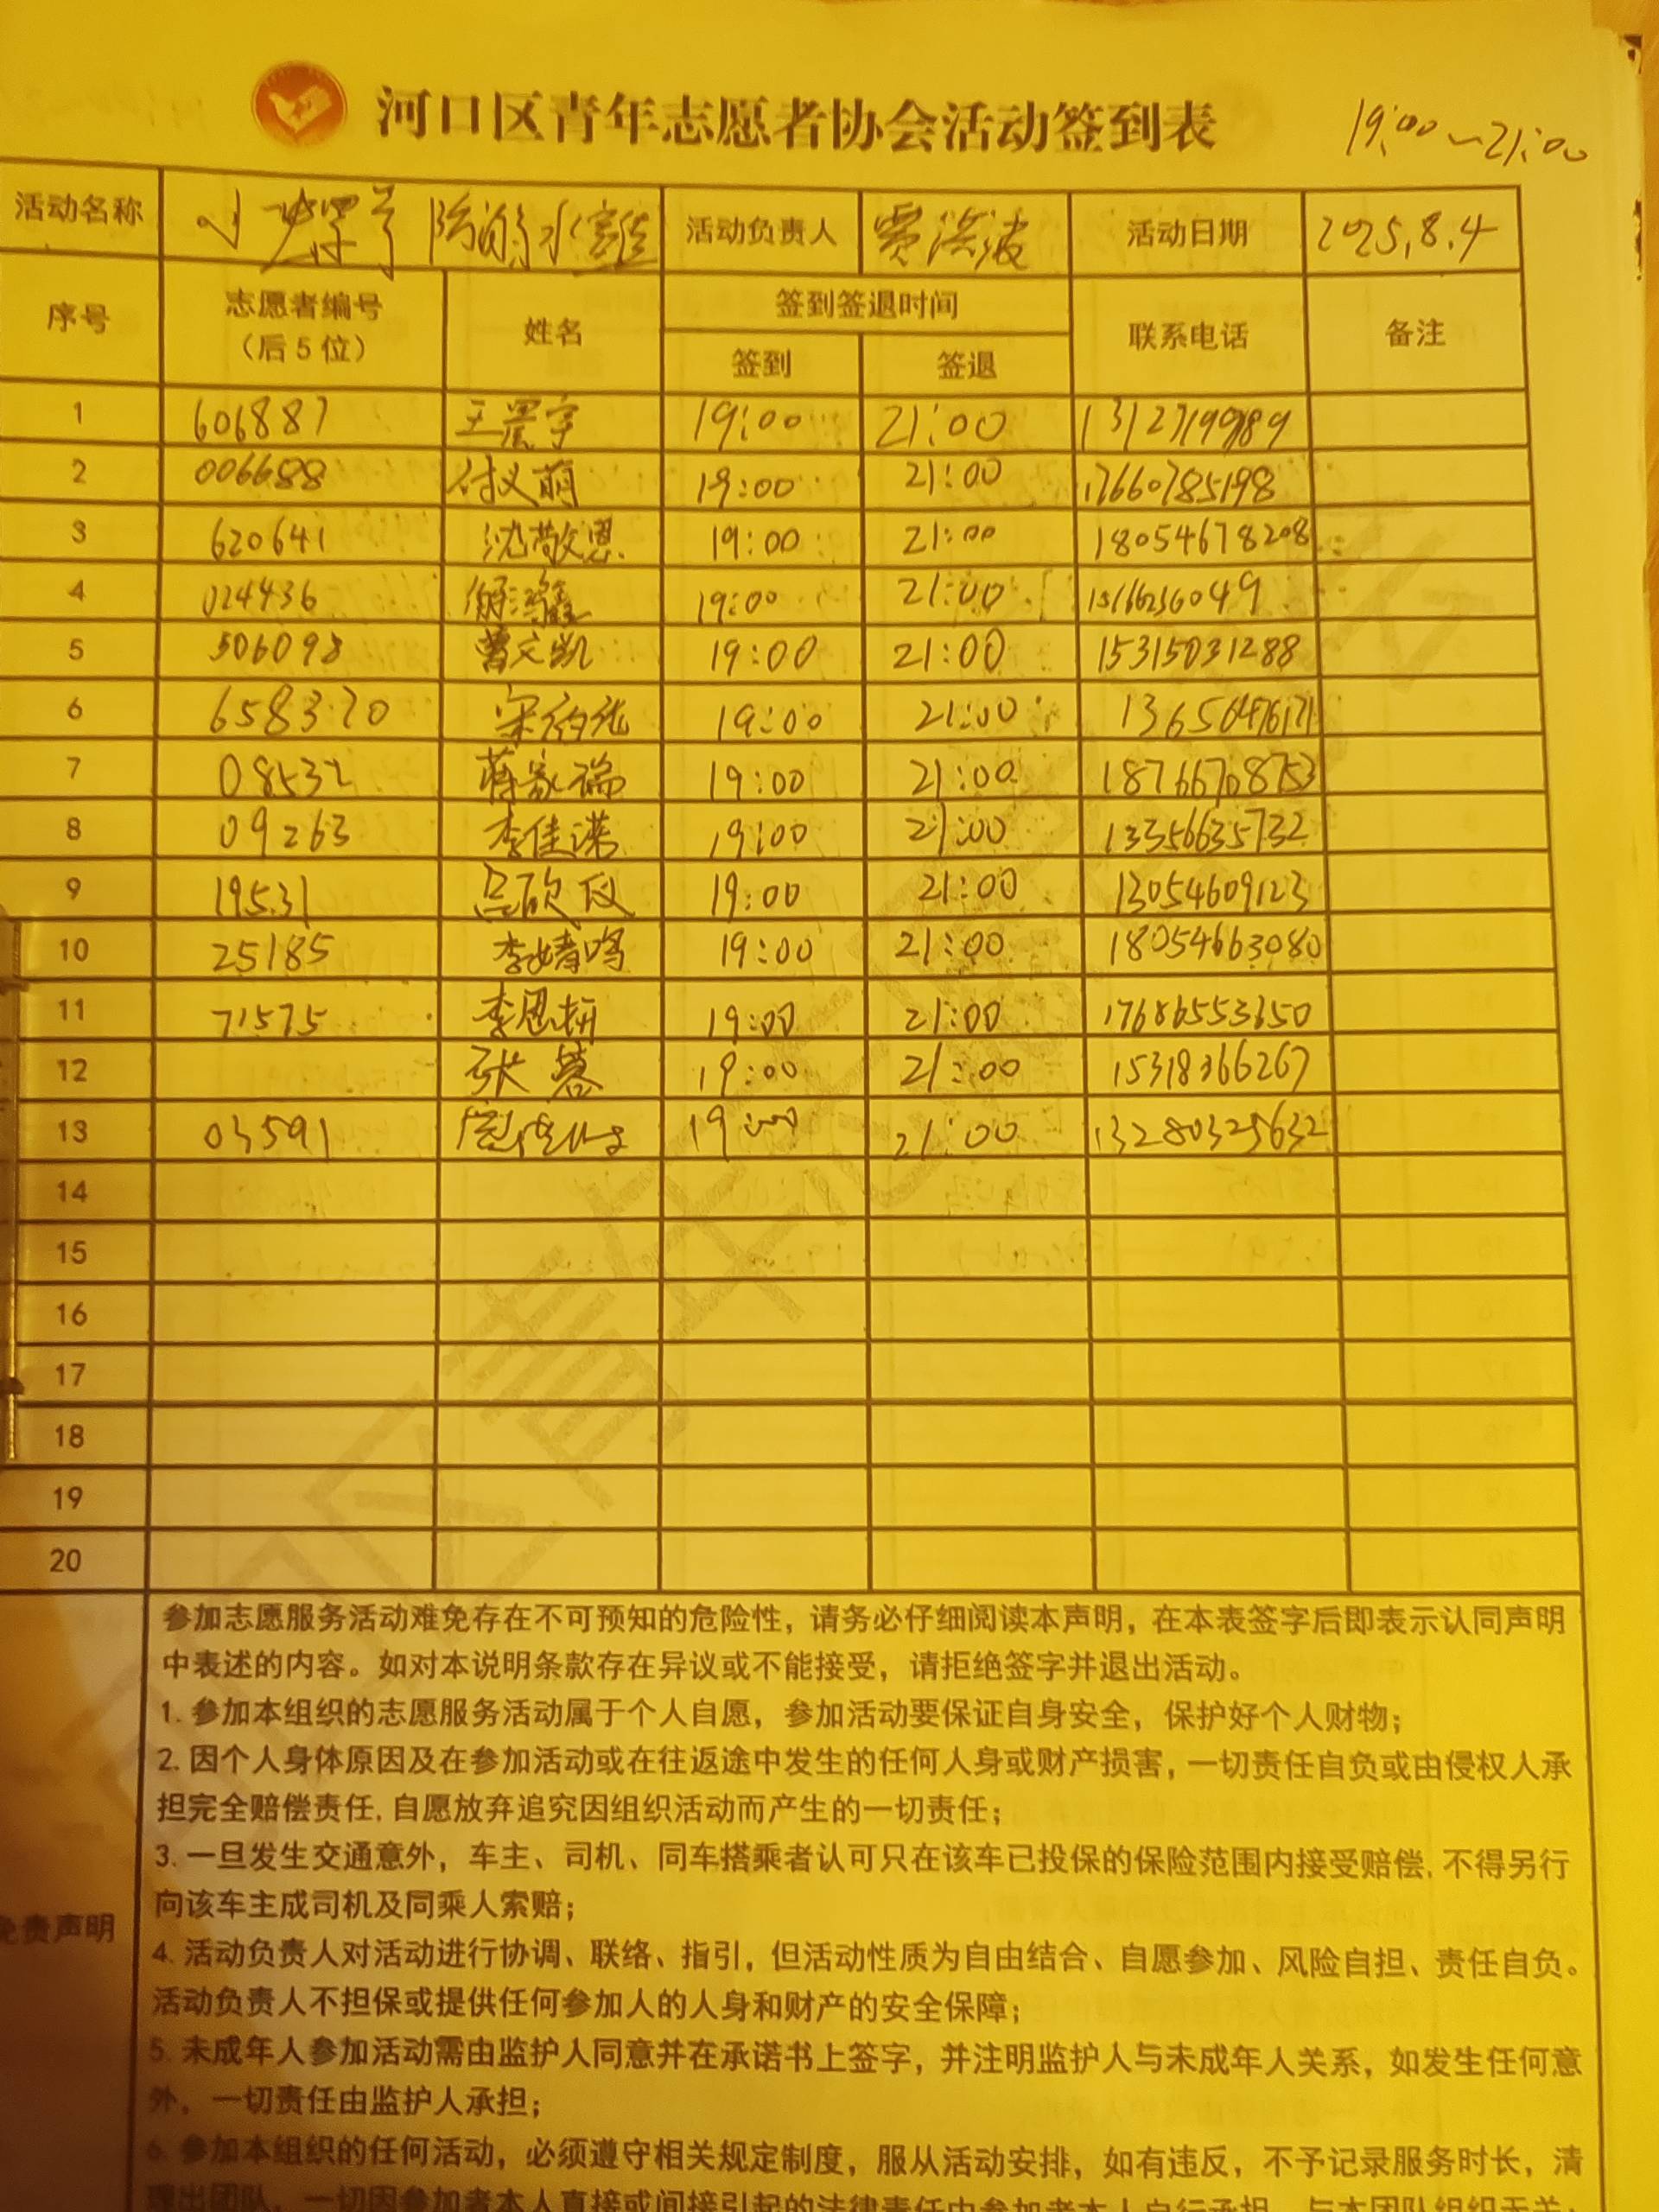 河口区青年志愿者协会活动签到表 19:00~21:00
活动名称 防溺水 活动负责人 贾洪波 活动日期 2025.8.4
序号 志愿者编号（后5位） 姓名 签到签退时间 联系电话 备注
签到 签退
1 606887 王 宇 19:00 21:00
2 006688 付义萌 19:00 21:00 17660785198
3 620641 沈敬恩 19:00 21:00 18054678208
4 024436 19:00 21:00
5 506098 曹文凯 19:00 21:00 15315031288
6 658320 宋 19:00 21:00 13650476171
7 08532 蒋家瑞 19:00 21:00 18766708753
8 09263 李佳诺 19:00 21:00 13356635732
9 19531 吕欣仪 19:00 21:00 13054609123
10 25185 李婧鸣 19:00 21:00 18054663080
11 71575 李恩妍 19:00 21:00 17686553650
12 张蓉 19:00 21:00 15318366267
13 03591 19:00 21:00 13280325632
14
15
16
17
18
19
20
免责声明
参加志愿服务活动难免存在不可预知的危险性，请务必仔细阅读本声明，在本表签字后即表示认同声明
中表述的内容。如对本说明条款存在异议或不能接受，请拒绝签字并退出活动。
1. 参加本组织的志愿服务活动属于个人自愿，参加活动要保证自身安全，保护好个人财物；
2. 因个人身体原因及在参加活动或在往返途中发生的任何人身或财产损害，一切责任自负或由侵权人承
担完全赔偿责任，自愿放弃追究因组织活动而产生的一切责任；
3. 一旦发生交通意外，车主、司机、同车搭乘者认可只在该车已投保的保险范围内接受赔偿，不得另行
向该车主成司机及同乘人索赔；
4. 活动负责人对活动进行协调、联络、指引，但活动性质为自由结合、自愿参加、风险自担、责任自负。
活动负责人不担保或提供任何参加人的人身和财产的安全保障；
5. 未成年人参加活动需由监护人同意并在承诺书上签字，并注明监护人与未成年人关系，如发生任何意
外，一切责任由监护人承担；
6. 参加本组织的任何活动，必须遵守相关规定制度，服从活动安排，如有违反，不予记录服务时长，清
理出团队，一切因参加者本人直接或间接引起的法律责任由参加者本人自行承担，与本团队组织无关；